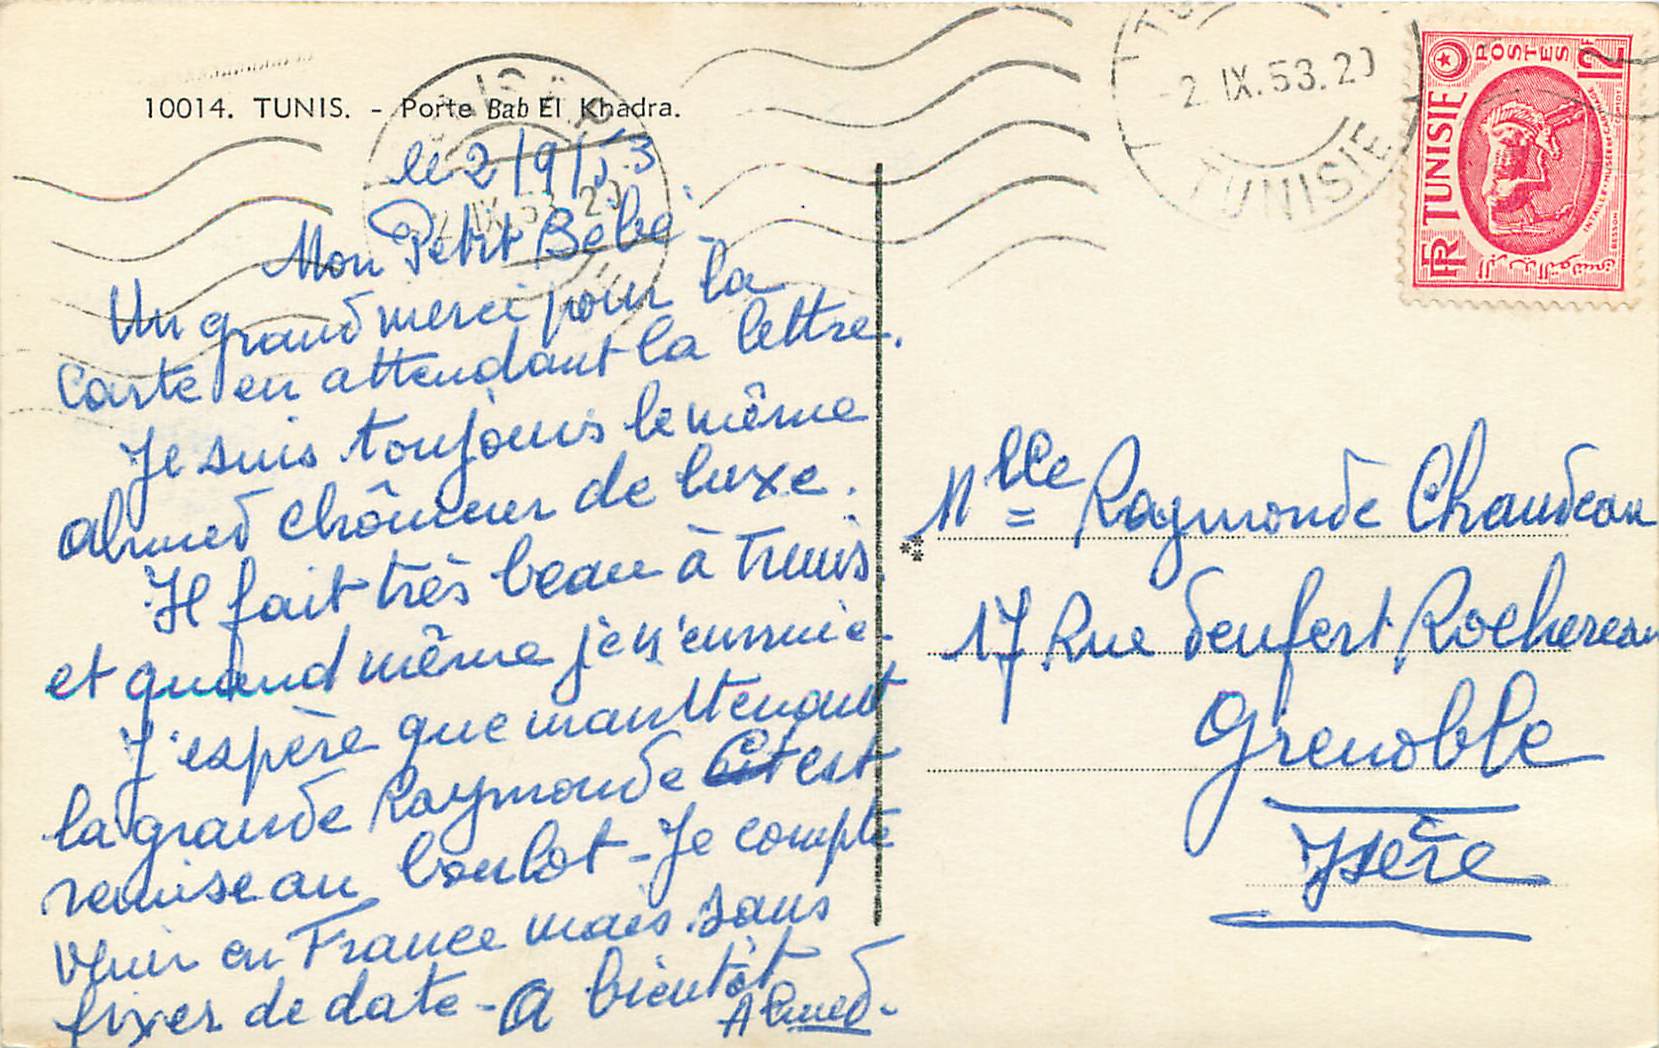 10014. TUNIS. - Porte Bab El Khadra.
le 2/9/53
Mon Petit Bébé -
Un grand merci pour la
Carte en attendant la lettre.
Je suis toujours le même
ahmed chômeur de luxe.
Il fait très beau à Tunis.
et quand même je n'ennuie -
J'espère que manttenant
la grande Raymonde est
remise au boulot - Je compte
venir en France mais sans
fixer de date - A bientôt
Ahmed -
Mlle = Raymonde Chaudeau
17 Rue Denfert Rochereau
Grenoble
Isère
-2. IX. 53. 20
TUNISIE
2. IX. 53. 20
RF TUNISIE
POSTES 12F
INTAILLE-MUSÉE DE CARTHAGE
BESSON
البريد التونسي